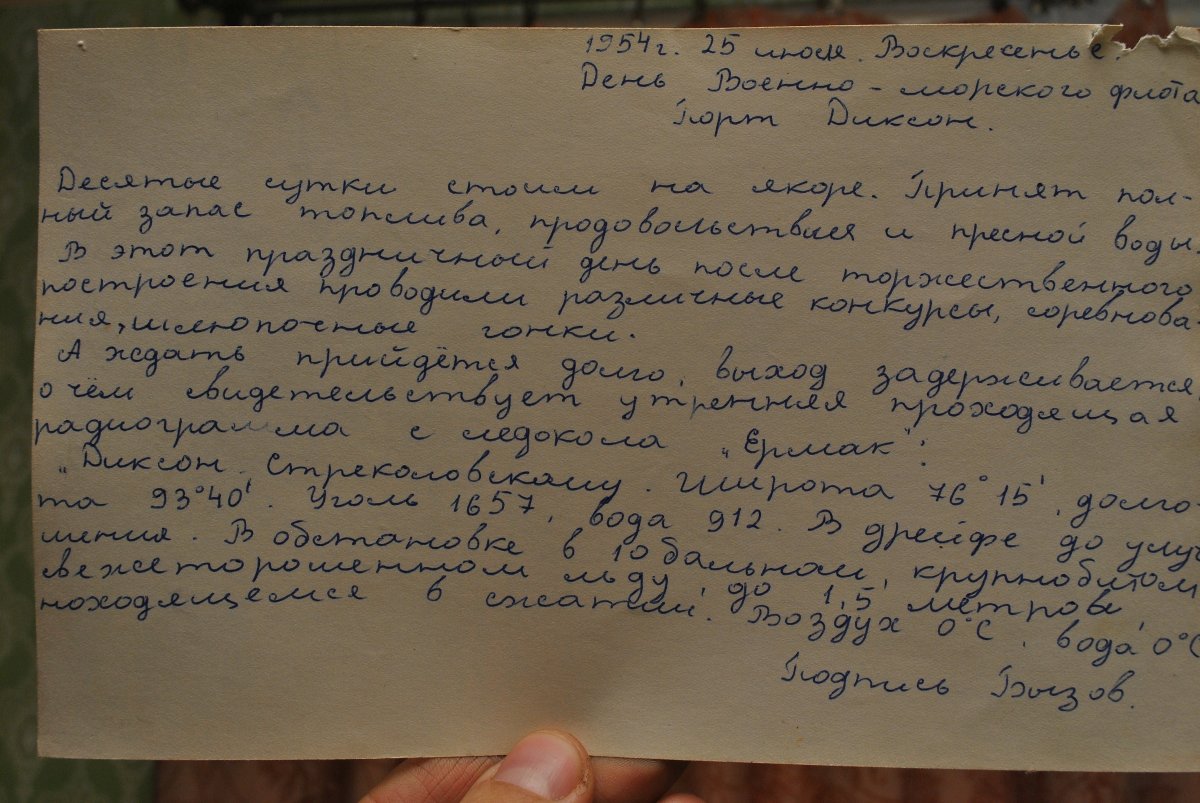 1954 г. 25 июля. Воскресенье.
День Военно-морского флота
Порт Диксон.
Десятые сутки стоим на якоре. Принят пол-
ный запас топлива, продовольствия и пресной воды.
В этот праздничный день после торжественного
построения проводили различные конкурсы, соревнова-
ния, шлюпочные гонки.
А ждать прийдётся долго, выход задерживается
о чём свидетельствует утренняя проходящая
радиограмма с ледокола „Ермак":
„Диксон. Стрекаловскому. Широта 76°15', долго
та 93°40'. Уголь 1657, вода 912. В дрейфе до улуч
шения. В обстановке в 10 бальном, крупнобитом,
свежеторошенном льду, до 1,5 метров,
находящемся в сжатии. Воздух 0°С, вода 0°С
Подпись Бызов.